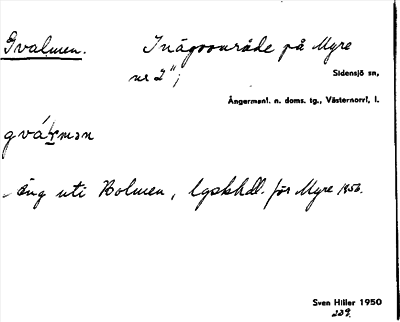 Gvalmen. Inägoområde på Myre
nr 2";
Sidensjö sn,
Ångermanl. n. doms. tg., Västernorrl. l.
Äng uti Holmen, Lgskhdl. för Myre 1850.
Sven Hiller 1950
229.